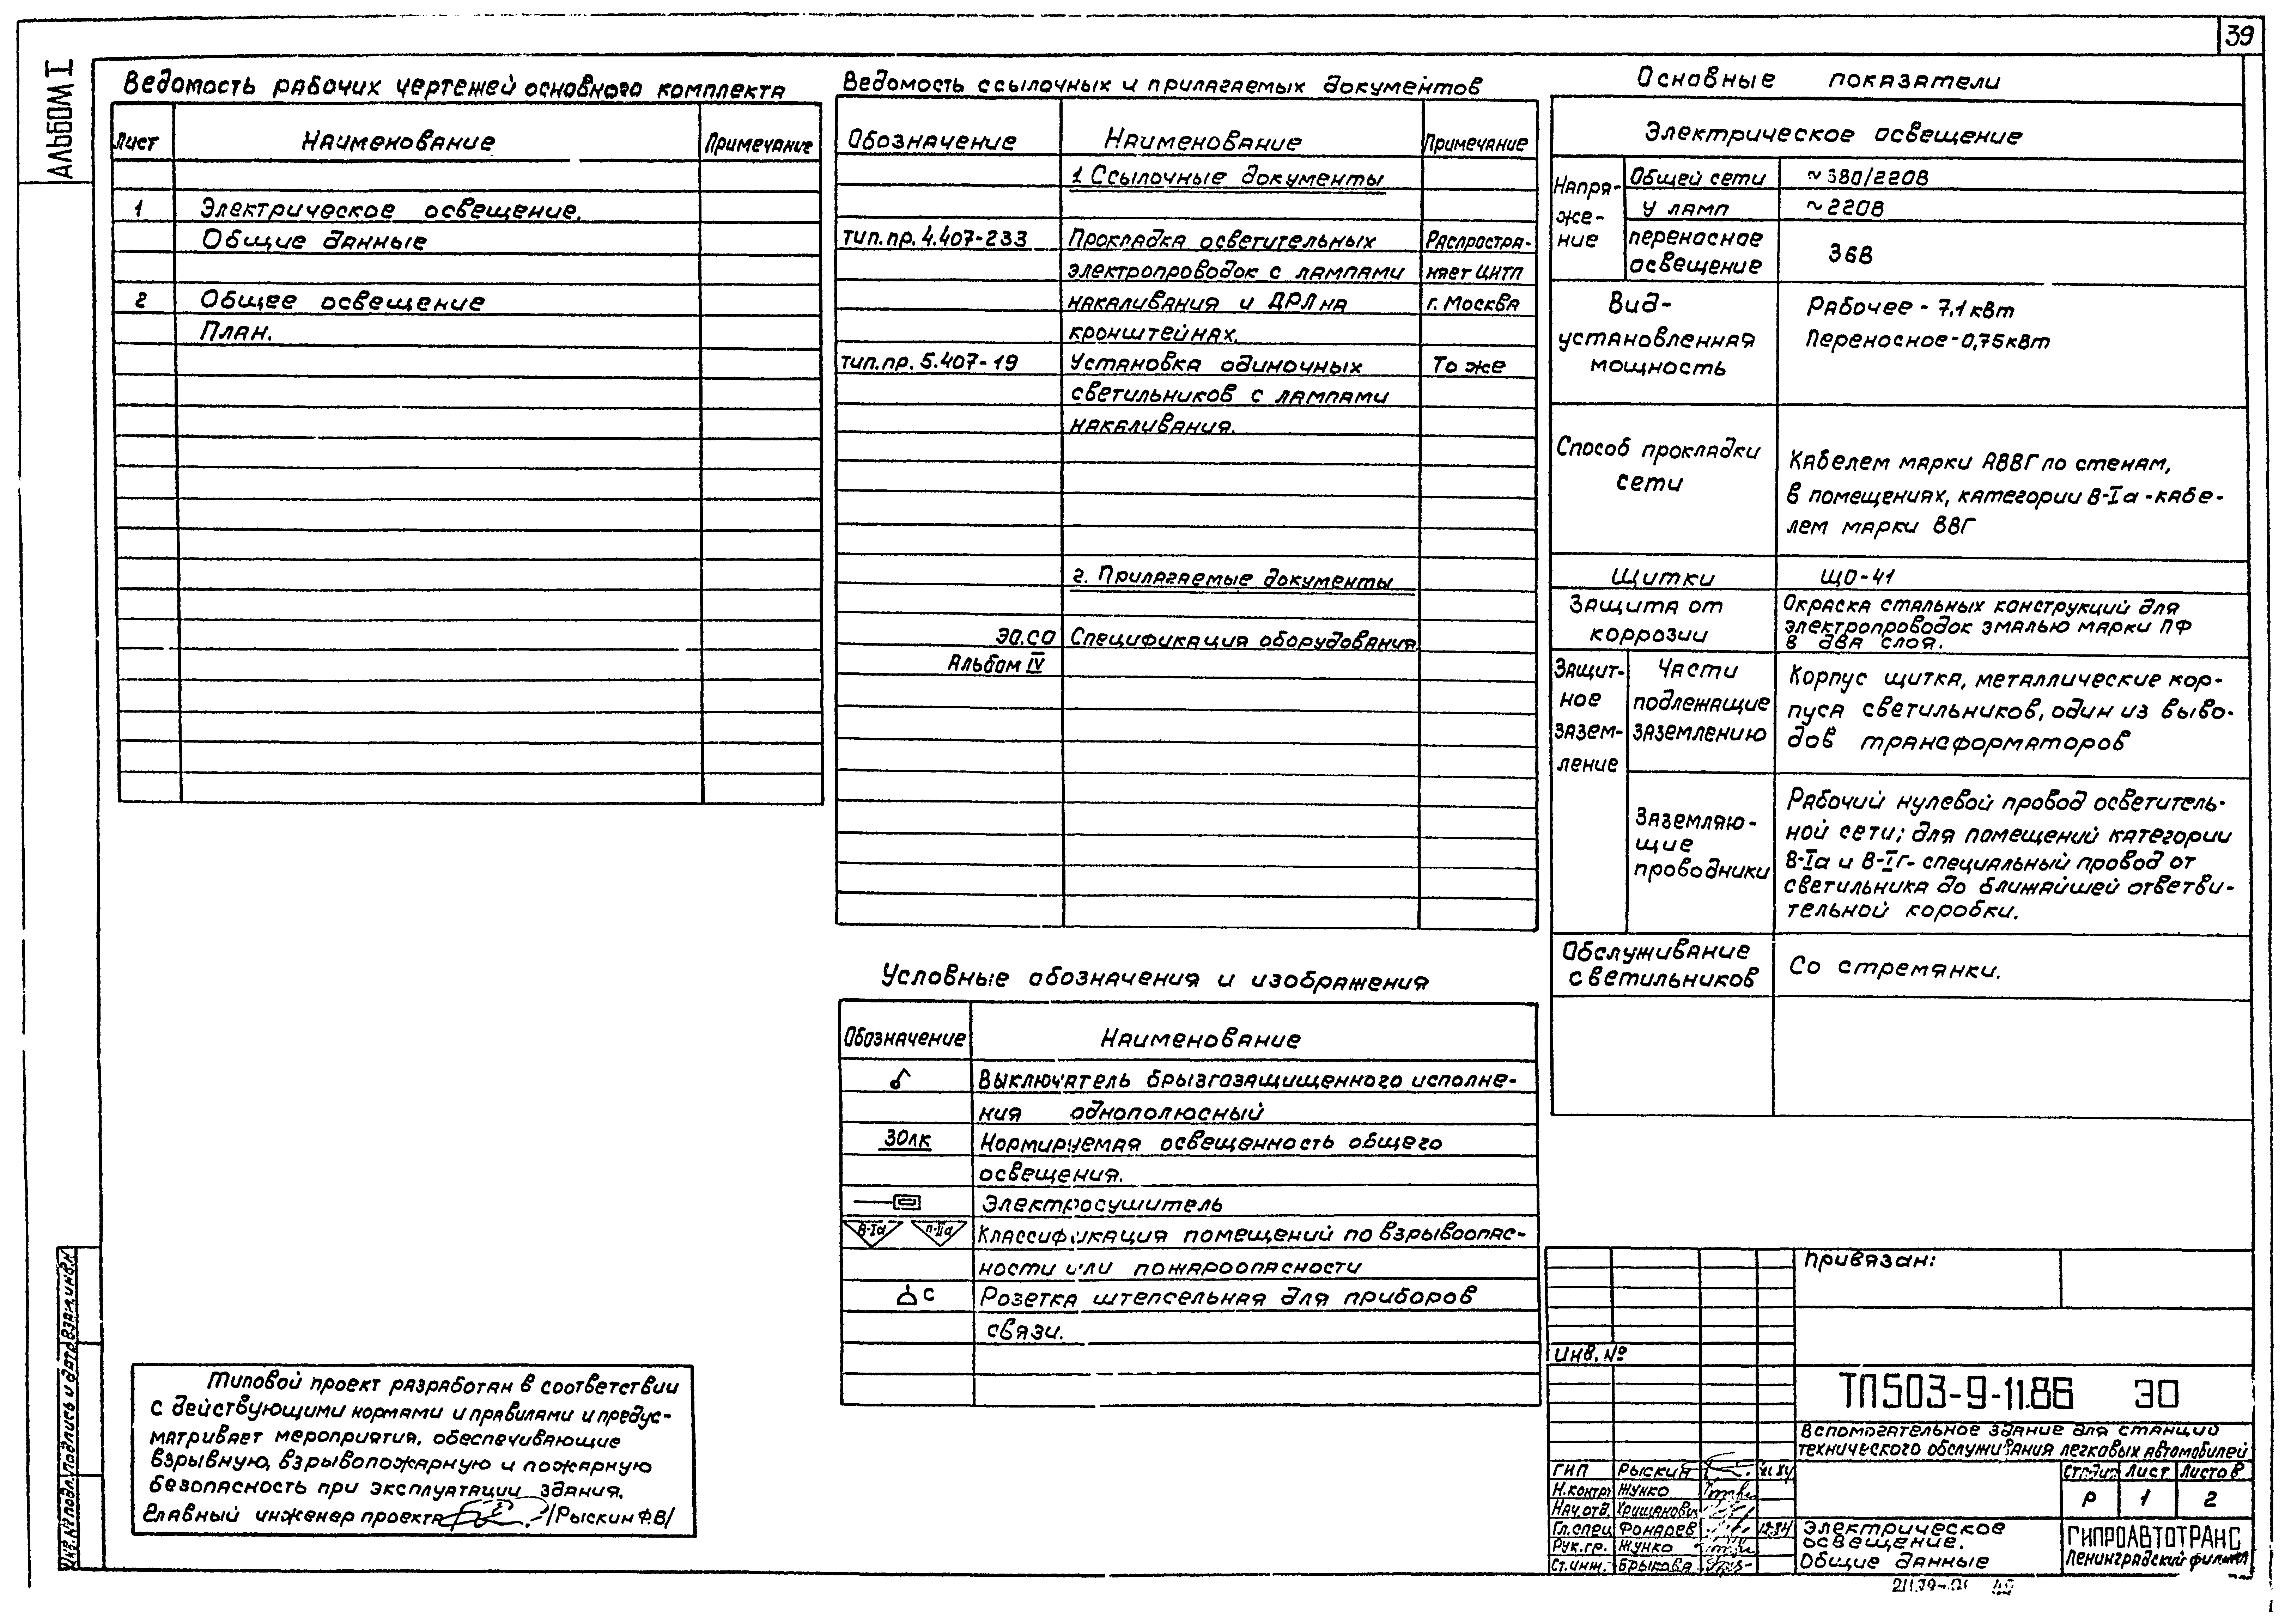 39
Альбом I
Ведомость рабочих чертежей основного комплекта
Лист Наименование Примечание
1 Электрическое освещение.
Общие данные
2 Общее освещение
План.
Ведомость ссылочных и прилагаемых документов
Обозначение Наименование Примечание
1. Ссылочные документы
тип.пр. 4.407-233 Прокладка осветительных Распростра-
электропроводок с лампами няет ЦИТП
накаливания и ДРЛ на г. Москва
кронштейнах.
тип.пр. 5.407-19 Установка одиночных То же
светильников с лампами
накаливания.
2. Прилагаемые документы
ЭО.СО Спецификация оборудования
Альбом IV
Основные показатели
Электрическое освещение
Напря-
же-
ние
Общей сети ~380/220В
У ламп ~220В
переносное
освещение
36В
Вид-
установленная
мощность
Рабочее - 7,1 кВт
Переносное - 0,75 кВт
Способ прокладки
сети
Кабелем марки АВВГ по стенам,
в помещениях, категории В-Iа - кабе-
лем марки ВВГ
Щитки ЩО-41
Защита от
коррозии
Окраска стальных конструкций для
электропроводок эмалью марки ПФ
в два слоя.
Защит-
ное
зазем-
ление
Части
подлежащие
заземлению
Корпус щитка, металлические кор-
пуса светильников, один из выво-
дов трансформаторов
Заземляю-
щие
проводники
Рабочий нулевой провод осветитель-
ной сети; для помещений категории
В-Iа и В-Iг- специальный провод от
светильника до ближайшей ответви-
тельной коробки.
Обслуживание
светильников
Со стремянки.
Условные обозначения и изображения
Обозначение Наименование
Выключатель брызгозащищенного исполне-
ния однополюсный
30лк Нормируемая освещенность общего
освещения.
Электросушитель
В-Iа П-IIа Классификация помещений по взрывоопас-
ности или пожароопасности
С Розетка штепсельная для приборов
связи.
Типовой проект разработан в соответствии
с действующими нормами и правилами и предус-
матривает мероприятия, обеспечивающие
взрывную, взрывопожарную и пожарную
безопасность при эксплуатации здания.
Главный инженер проекта /Рыскин Ф.В/
Инв.№ подл. Подпись и дата Взам.инв.№
Привязан:
Инв. №
ТП503-9-11.86 ЭО
Вспомогательное здание для станций
технического обслуживания легковых автомобилей
ГИП Рыскин
Н.контр Жунко
Нач.отд.
Гл.спец Фонарев 12.84
Рук.гр. Жунко
Ст.инж. Брыкова
Стадия Лист Листов
Р 1 2
Электрическое
освещение.
Общие данные
ГИПРОАВТОТРАНС
Ленинградский филиал